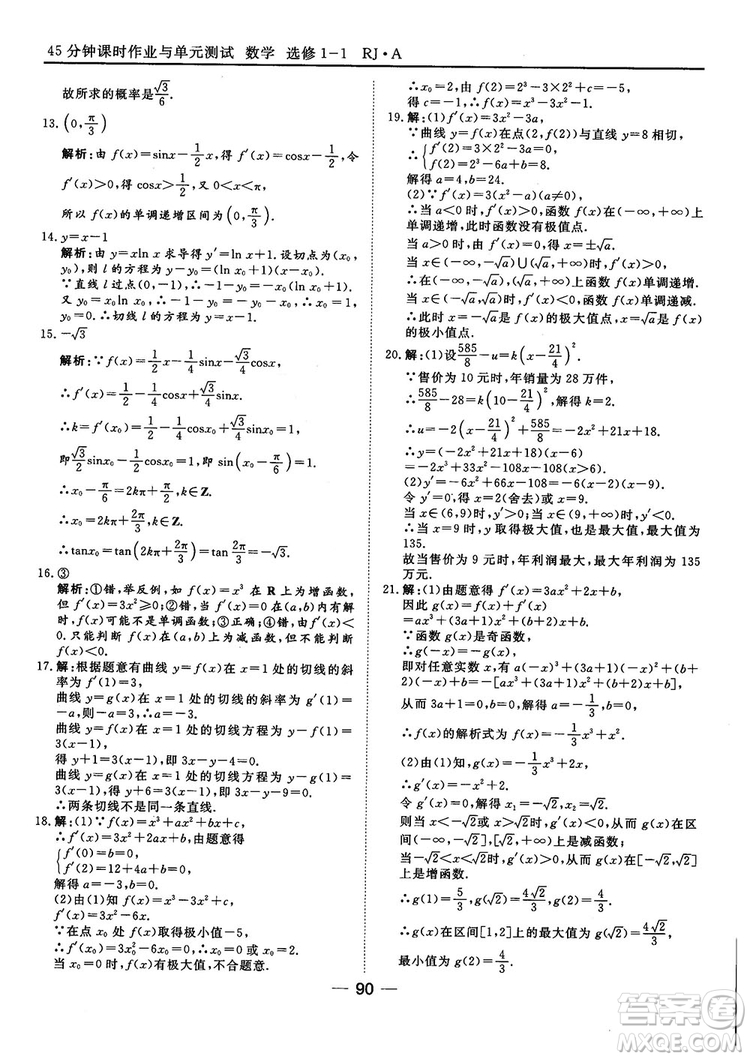 45分钟课时作业与单元测试 数学 选修1-1 RJ·A
故所求的概率是√3/6.
13. (0, π/3)
解析:由 f(x)=sinx-1/2x,得 f′(x)=cosx-1/2,令
f′(x)>0,得 cosx>1/2,又 0<x<π,
所以 f(x)的单调递增区间为(0, π/3).
14. y=x-1
解析:由 y=xln x 求导得 y′=ln x+1.设切点为(x₀,
y₀),则 l 的方程为 y-y₀=(ln x₀+1)(x-x₀).
∵直线 l 过点(0,-1),∴-1-y₀=-x₀(ln x₀+1).
又∵y₀=x₀ln x₀,∴-1-x₀ln x₀=-x₀ln x₀-x₀.
∴x₀=1,y₀=0.∴切线 l 的方程为 y=x-1.
15. -√3
解析:∵f(x)=1/2x-1/4sinx-√3/4cosx,
∴f′(x)=1/2-1/4cosx+√3/4sinx.
∴k=f′(x₀)=1/2-1/4cosx₀+√3/4sinx₀=1,
即√3/2sinx₀-1/2cosx₀=1,即sin(x₀-π/6)=1.
∴x₀-π/6=2kπ+π/2,k∈Z.
∴x₀=2kπ+2π/3,k∈Z.
∴tanx₀=tan(2kπ+2π/3)=tan2π/3=-√3.
16. ③
解析:①错,举反例,如 f(x)=x³ 在 R 上为增函数,
但 f′(x)=3x²≥0;②错,如 f(x)=x,f′(x)=1>0,
f′(x)可能不是单调函数;③正确;④错,由 f′(x)<
0.只能判断 f(x)在(a,b)上为减函数,不能判断
f(x)<0.
17. 解:根据题意有曲线 y=f(x)在 x=1 处的切线的斜
率为 f′(1)=3,
曲线 y=g(x)在 x=1 处的切线的斜率为 g′(1)=
-a,则-a=3,∴a=-3.
曲线 y=f(x)在 x=1 处的切线方程为 y-f(1)=
3(x-1),
得 y+1=3(x-1),即 3x-y-4=0.
曲线 y=g(x)在 x=1 处的切线方程为 y-g(1)=
3(x-1).
得 y+6=3(x-1),即 3x-y-9=0.
∴两条切线不是同一条直线.
18. 解:(1)∵f(x)=x³+ax²+bx+c,
∴f′(x)=3x²+2ax+b,由题意得
{f′(0)=b=0,
f′(2)=12+4a+b=0,
解得 a=-3,b=0.
(2)由(1)知 f(x)=x³-3x²+c,
∴f′(x)=3x²-6x.
∵在点 x₀ 处取得极小值-5,
∴f′(x₀)=3x₀²-6x₀=0,∴x₀=0 或 x₀=2,
当 x₀=0 时,f(x)有极大值,不合题意.
∴x₀=2,由 f(2)=2³-3×2²+c=-5,
得 c=-1.
19. 解:(1)f′(x)=3x²-3a,
∵曲线 y=f(x)在点(2,f(2))与直线 y=8 相切,
∴{f′(2)=0,
f(2)=8.
解得 a=4,b=24.
(2)∵f′(x)=3(x²-a)(a≠0),
∴当 a<0 时,f′(x)>0,函数 f(x)在(-∞,+∞)上
单调递增,此时函数没有极值点.
当 a>0 时,由 f′(x)=0,得 x=±√a.
当 x∈(-∞,-√a)∪(√a,+∞)时,f′(x)>0,
∴f(x)在(-∞,-√a),(√a,+∞)上单调递增.
当 x∈(-√a,√a)时,f′(x)<0,f(x)单调递减.
∴此时 x=-√a是 f(x)的极大值点,x=√a是 f(x)
的极小值点.
20. 解:(1)设585/8-u=k(x-21/4)².
∵售价为 10 元时,年销量为 28 万件,
∴585/8-28=k(10-21/4)²,解得 k=2.
∴u=-2(x-21/4)²+585/8=-2x²+21x+18.
∴y=(-2x²+21x+18)(x-6)
=-2x³+33x²-108x-108(x>6).
(2)y′=-6x²+66x-108=-6(x-2)(x-9).
令 y′=0,得 x=2(舍去)或 x=9.
当 x∈(6,9)时,y′>0,当 x∈(9,+∞)时,y′<0.
∴当 x=9 时,y 取得极大值,也是最大值,最大值为
135.
故当售价为 9 元时,年利润最大,最大年利润为 135
万元.
21. 解:(1)由题意得 f′(x)=3ax²+2x+b,
因此 g(x)=f(x)+f′(x)
=ax³+(3a+1)x²+(b+2)x+b.
∵函数 g(x)是奇函数,
∴g(-x)=-g(x),
即对任意实数 x,有 a(-x)³+(3a+1)(-x)²+
(b+2)(-x)+b=-[ax³+(3a+1)x²+(b+2)x+b],
从而 3a+1=0,b=0,解得 a=-1/3,b=0.
∴f(x)的解析式为 f(x)=-1/3x³+x².
(2)由(1)知,g(x)=-1/3x³+2x,
∴g′(x)=-x²+2.
令 g′(x)=0,解得 x₁=-√2,x₂=√2.
则当 x<-√2或 x>√2时,g′(x)<0,从而 g(x)在区
间(-∞,-√2),(√2,+∞)上是减函数;
当-√2<x<√2时,g′(x)>0,从而 g(x)在(-√2,√2)
上是增函数.
∴g(1)=5/3,g(√2)=4√2/3,g(2)=4/3,
∴g(x)在区间[1,2]上的最大值为 g(√2)=4√2/3,
最小值为 g(2)=4/3.
— 90 —